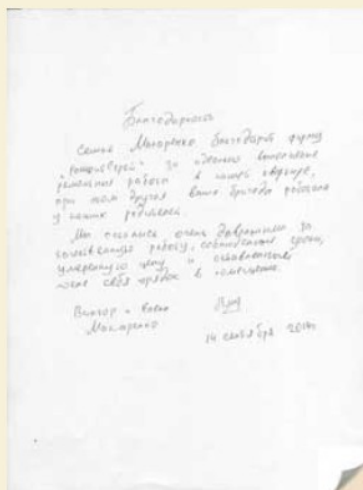 Благодарность
Семья Макаренко благодарит фирму
за выполнение
ремонтных работ в нашей квартире,
при том другая ваша бригада работала
у наших родителей.
Мы остались очень за
работу, соблюдение сроки,
умеренную цену и
после себя порядок в помещении.
Виктор и
Макаренко
14 сентября 2014г